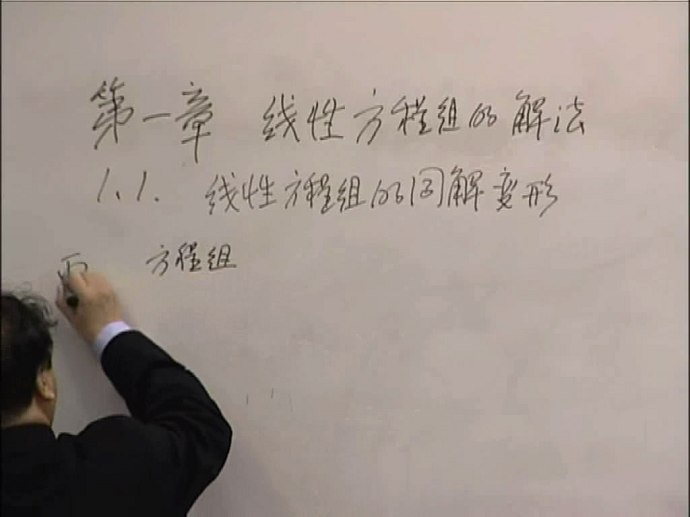 第一章 线性方程组的解法
1.1. 线性方程组的同解变形
方程组